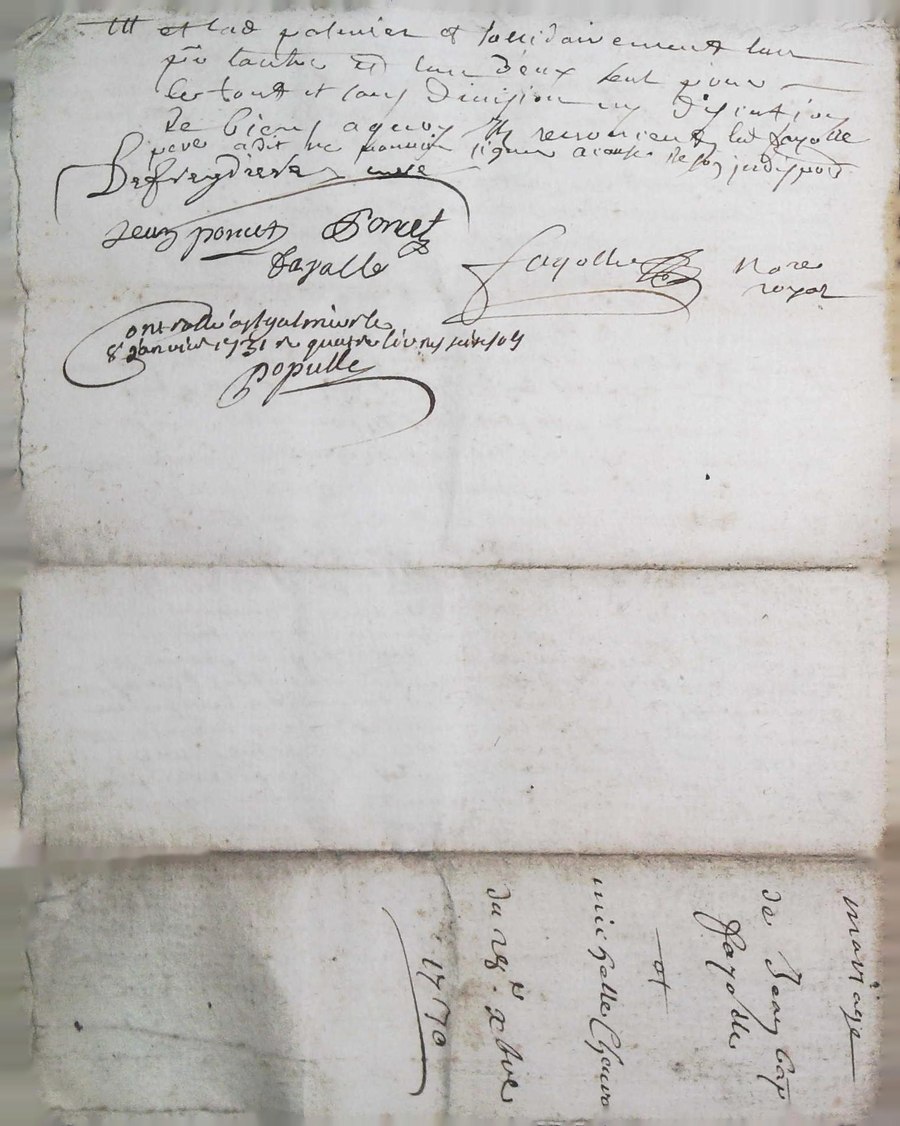 et lad palmier et sollidairement lun
po lautre et lun deux seul pour
le tout et sans division ny discution
de biens a quoy ils renoncient led fayolle
pere a dit ne pouvoir signer a cause de son indispon
Defreydiere cure
Jean poncet Poncet
fayolle
fayolle Nore
royal
Controllé a St galmier le
8e Janvier 1731 R quatre livres seize sols
Populle
mariage
de Jean Bap
fayolle
et
michelle
du 29e xbre
1730